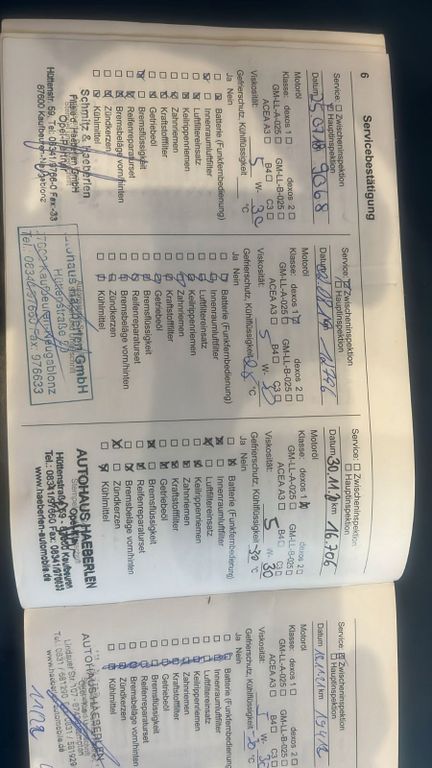 6
Servicebestätigung
Service: Zwischeninspektion
Hauptinspektion
Datum 25.07.18 km 9368
Motoröl
Klasse: dexos 1 dexos 2
GM-LL-A-025 GM-LL-B-025
ACEA A3 B4 C3
Viskosität: 5 W- 30
Gefrierschutz, Kühlflüssigkeit °C
Ja Nein
Batterie (Funkfernbedienung)
Innenraumluftfilter
Luftfiltereinsatz
Keilrippenriemen
Zahnriemen
Kraftstofffilter
Getriebeöl
Bremsflüssigkeit
Reifenreparaturset
Bremsbeläge vorn/hinten
Zündkerzen
Kühlmittel
Schmitz & Haeberlen
GmbH
Hüttenstr. 59, Tel. 08341/9766-0 Fax -33
87600 Kaufbeuren-Neugablonz
Service: Zwischeninspektion
Hauptinspektion
Datum km
Motoröl
Klasse: dexos 1 dexos 2
GM-LL-A-025 GM-LL-B-025
ACEA A3 B4 C3
Viskosität: 5 W- 30
Gefrierschutz, Kühlflüssigkeit °C
Ja Nein
Batterie (Funkfernbedienung)
Innenraumluftfilter
Luftfiltereinsatz
Keilrippenriemen
Zahnriemen
Kraftstofffilter
Getriebeöl
Bremsflüssigkeit
Reifenreparaturset
Bremsbeläge vorn/hinten
Zündkerzen
Kühlmittel
Haeberlen GmbH
Hüttenstraße
Kaufbeuren-Neugablonz
Fax 976633
Service: Zwischeninspektion
Hauptinspektion
Datum 30.11.2 km 16.706
Motoröl
Klasse: dexos 1 dexos 2
GM-LL-A-025 GM-LL-B-025
ACEA A3 B4 C3
Viskosität: 5 W- 30
Gefrierschutz, Kühlflüssigkeit -30 °C
Ja Nein
Batterie (Funkfernbedienung)
Innenraumluftfilter
Luftfiltereinsatz
Keilrippenriemen
Zahnriemen
Kraftstofffilter
Getriebeöl
Bremsflüssigkeit
Reifenreparaturset
Bremsbeläge vorn/hinten
Zündkerzen
Kühlmittel
AUTOHAUS HAEBERLEN
Hüttenstraße Kaufbeuren
www.haeberlen-automobile.de
Service: Zwischeninspektion
Hauptinspektion
Datum km
Motoröl
Klasse: dexos 1 dexos
GM-LL-A-025 GM-LL-B-025
ACEA A3 B4
Viskosität:
Gefrierschutz, Kühlflüssigkeit °C
Ja Nein
Batterie (Funkfernbedienung
Innenraumluftfilter
Luftfiltereinsatz
Keilrippenriemen
Zahnriemen
Kraftstofffilter
Getriebeöl
Bremsflüssigkeit
Reifenreparaturset
Bremsbeläge vorn/hinten
Zündkerzen
Kühlmittel
AUTOHAUS HAEBERLEN
Lindauer Str. 107